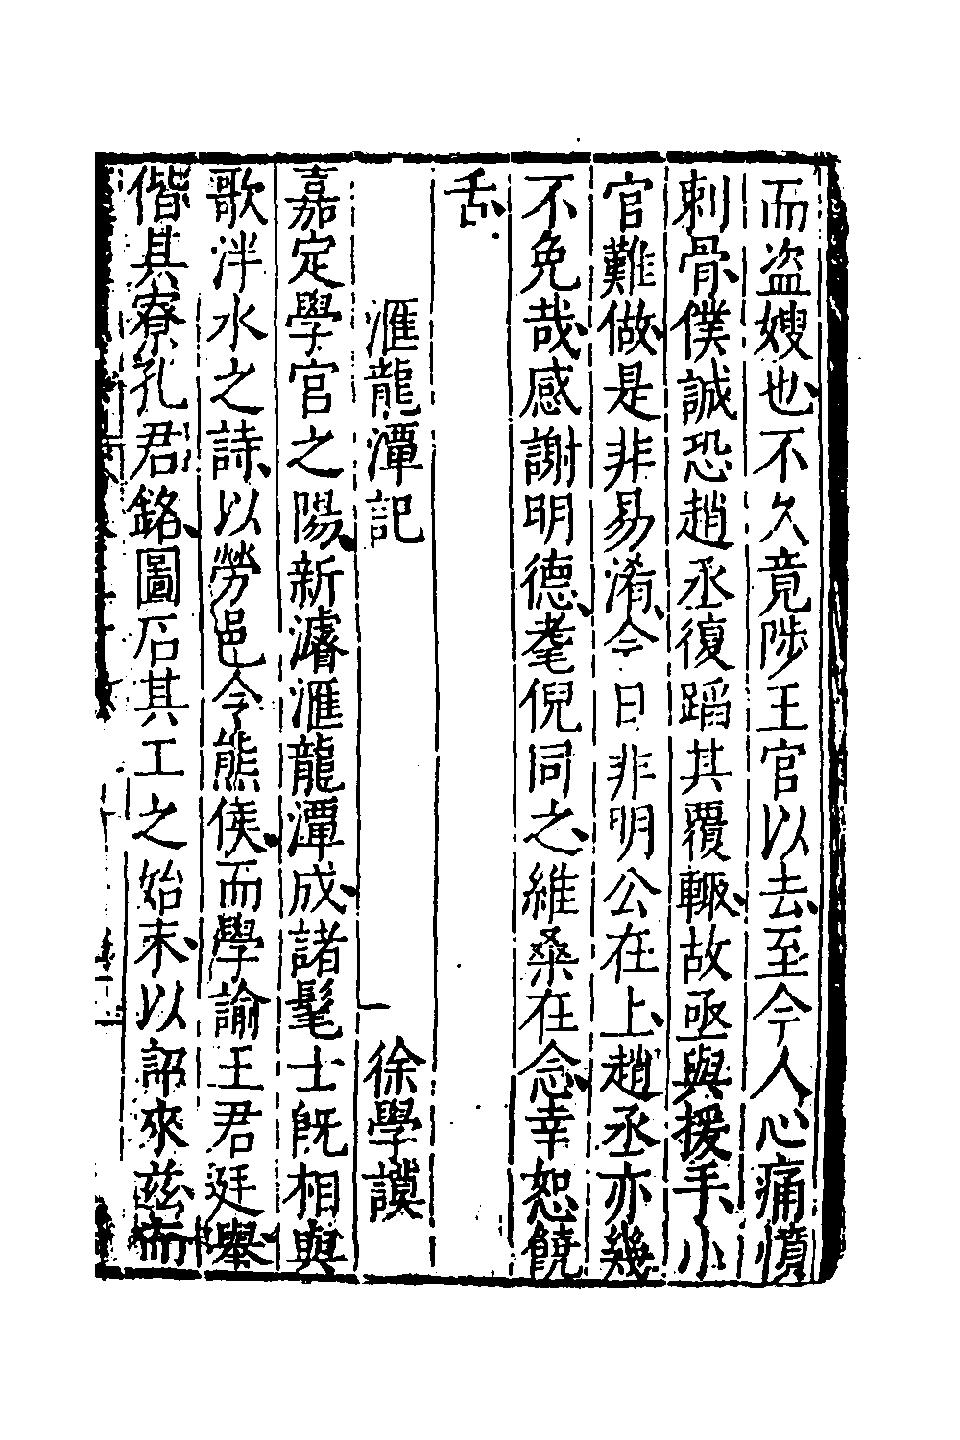 而盗嫂也不久竟陟王官以去至今人心痛憤
刺骨僕誠恐趙丞復蹈其覆轍故亟與援手小
官難做是非易淆今日非明公在上趙丞亦幾
不免哉感謝明德耄倪同之維桑在念幸恕饒
舌
滙龍潭記 徐學謨
嘉定學宫之陽新濬滙龍潭成諸髦士既相與
歌泮水之詩以勞邑令熊侯而學諭王君廷舉
偕其寮孔君銘圖石其工之始末以詔來兹而